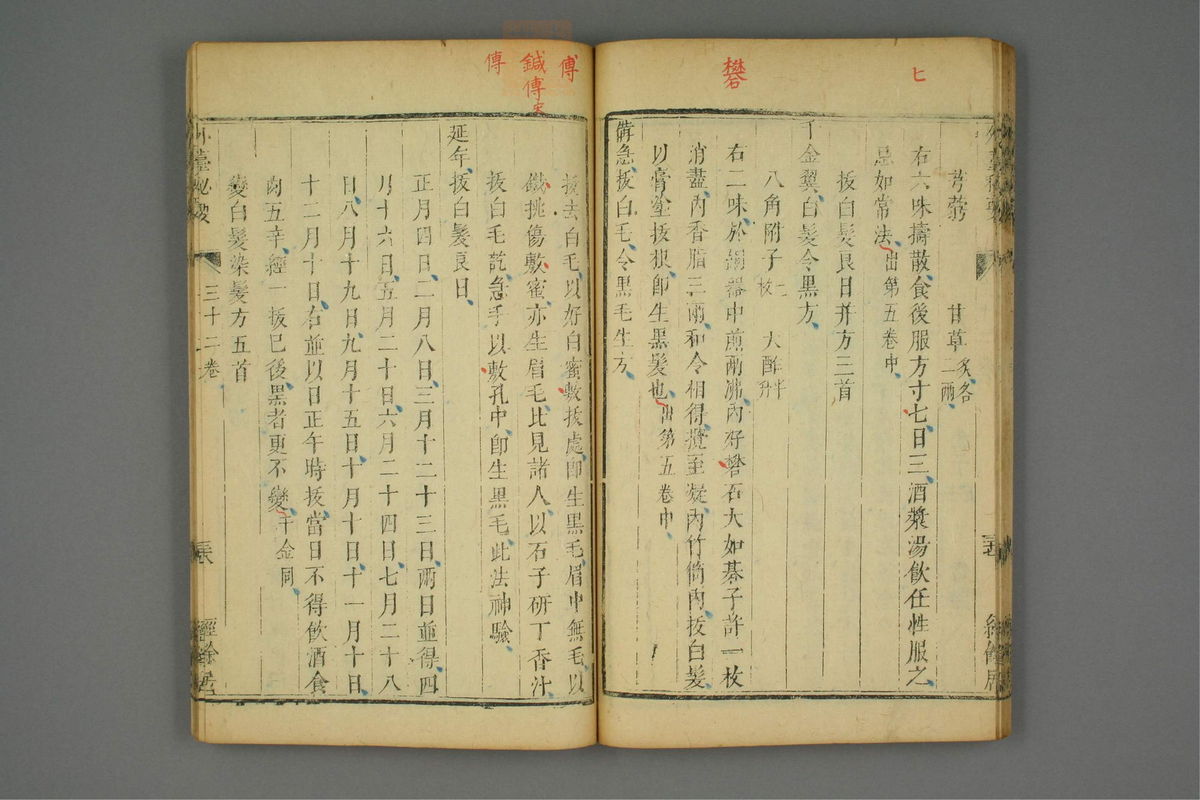 匕
礬
芎藭 甘草炙各一兩
右六味擣散食後服方寸七日三酒漿湯飲任性服之
忌如常法出第五卷中
拔白髮良日并方三首
千金翼白髮令黑方
八角附子一枚 大酢半升
右二味於銅器中煎兩沸內好礬石大如碁子許一枚
消盡內香脂三兩和令相得攪至凝內竹筒內拔白髮
以膏塗拔根即生黑髮也出第五卷中
備急拔白毛令黑毛生方
傅
鍼傅
傅
拔去白毛以好白蜜敷拔處即生黑毛眉中無毛以
鐵挑傷敷蜜亦生眉毛比見諸人以石子研丁香汁
拔白毛訖急手以敷孔中即生黑毛此法神驗
延年拔白髮良日
正月四日二月八日三月十二十三日兩日並得四
月十六日五月二十日六月二十四日七月二十八
日八月十九日九月十五日十月十日十一月十日
十二月十日右並以日正午時拔當日不得飲酒食
肉五辛經一拔已後黑者更不變千金同
變白髮染髮方五首
外臺秘要 三十二卷 經餘居